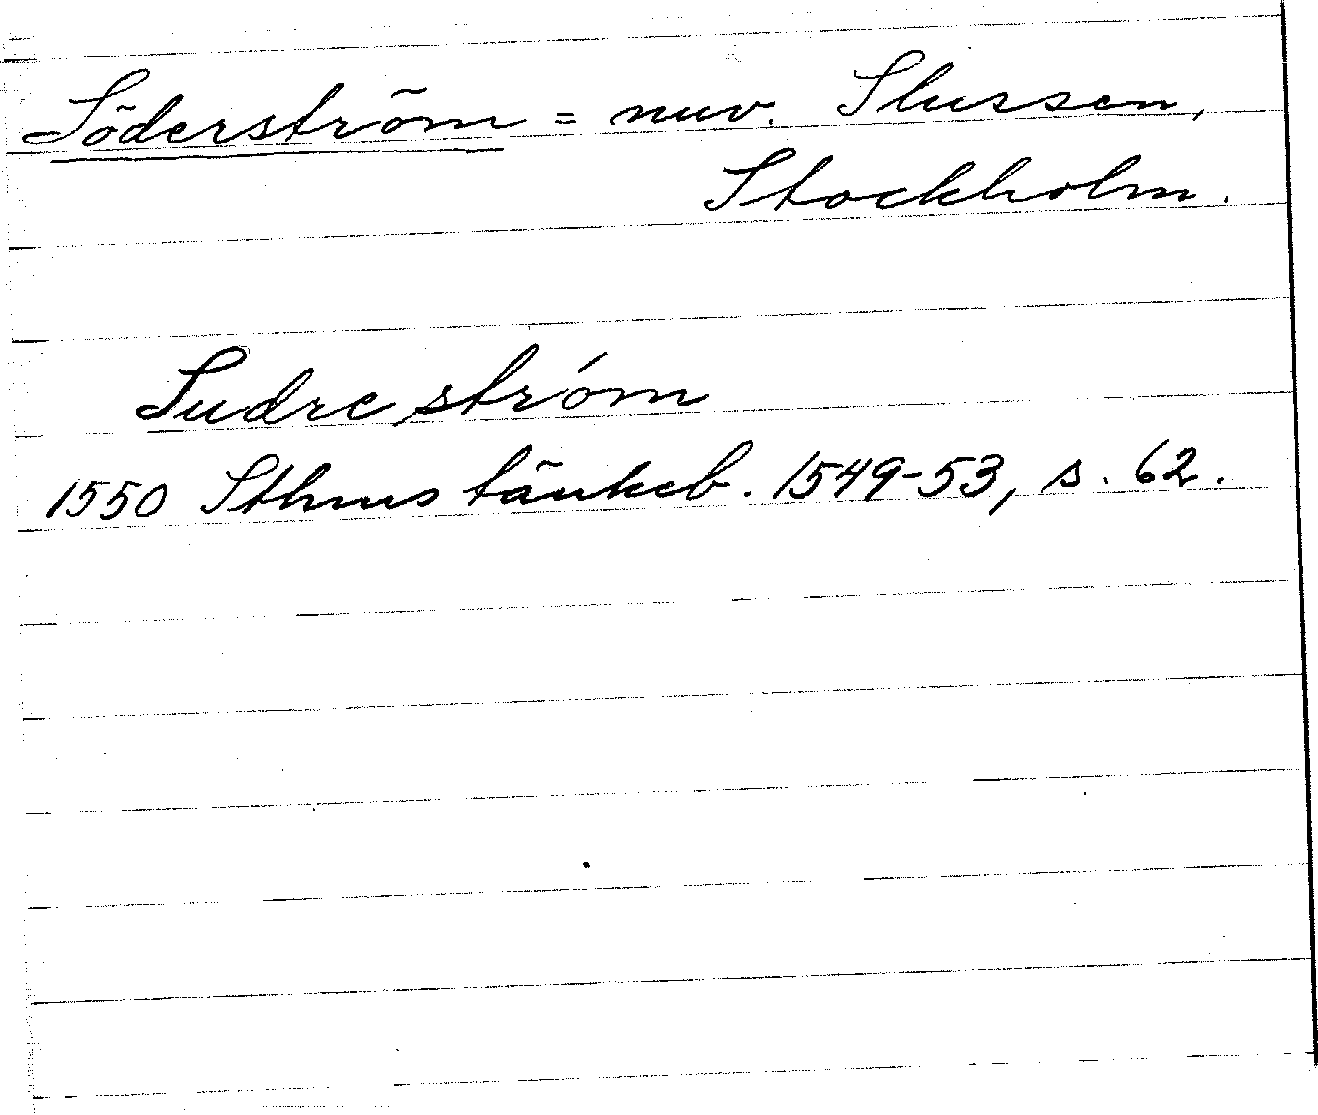 Söderström = nuv. Slussen,
Stockholm.
Sudre ström
1550 Sthms tänkeb. 1549-53, s. 62.